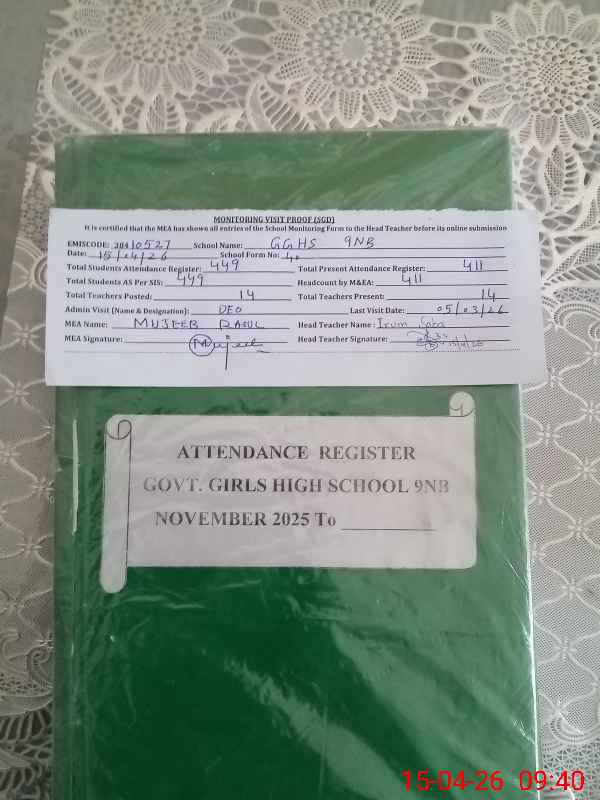 MONITORING VISIT PROOF (SGD)
It is certified that the MEA has shown all entries of the School Monitoring Form to the Head Teacher before its online submission
EMISCODE: 38410527 School Name: GGHS 9NB
Date: 15/04/26 School Form No: 40
Total Students Attendance Register: 449 Total Present Attendance Register: 411
Total Students AS Per SIS: 449 Headcount by M&EA: 411
Total Teachers Posted: 14 Total Teachers Present: 14
Admin Visit (Name & Designation): DEO Last Visit Date: 05/03/26
MEA Name: MUJEEB RASUL Head Teacher Name: Irum Saba
MEA Signature: Mujeeb Head Teacher Signature:
ATTENDANCE REGISTER
GOVT. GIRLS HIGH SCHOOL 9NB
NOVEMBER 2025 To
15-04-26 09:40